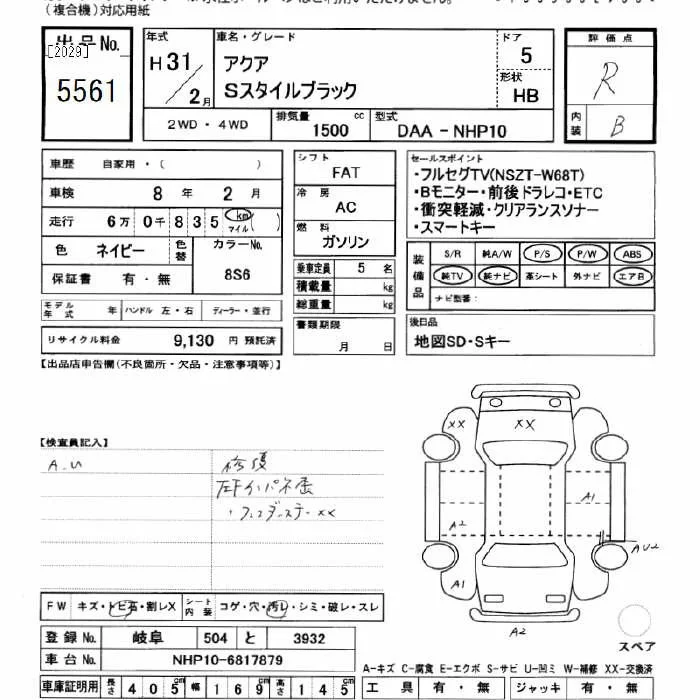 （複合機）対応用紙
出品No.
[2029]
5561
年式
H 31/2月
車名・グレード
アクア
Sスタイルブラック
ドア
5
形状
HB
評価点
R
内装
B
2WD・4WD
排気量
1500 cc
型式
DAA－NHP10
車歴 自家用・（ ）
車検 8 年 2 月
走行 6万 0千 8 3 5 km マイル( )
色 ネイビー 色替 カラーNo.
保証書 有・無 8S6
モデル年式 年 ハンドル 左・右 ディーラー・並行
リサイクル料金 9,130 円 預託済
シフト
FAT
冷房
AC
燃料
ガソリン
乗車定員 5 名
積載量 kg
総重量 kg
書類期限
月 日
セールスポイント
・フルセグTV(NSZT-W68T)
・Bモニター・前後ドラレコ・ETC
・衝突軽減・クリアランスソナー
・スマートキー
装備品
S/R 純A/W P/S P/W ABS
純TV 純ナビ 革シート 外ナビ エアB
ナビ型番：
後日品
地図SD・Sキー
【出品店申告欄(不良箇所・欠品・注意事項等)】
【検査員記入】
A.U
修復
XX
XX
A1
A2
AU2
A1
A2
スペア
FW キズ・トビ石・割レX シート内装 コゲ・穴・汚レ・シミ・破レ・スレ
登録No. 岐阜 504 と 3932
車台No. NHP10-6817879
車庫証明用 長さ 405cm 幅 169cm 高さ 145cm
A-キズ C-腐食 E-エクボ S-サビ U-凹ミ W-補修 XX-交換済
工具 有・無 ジャッキ 有・無